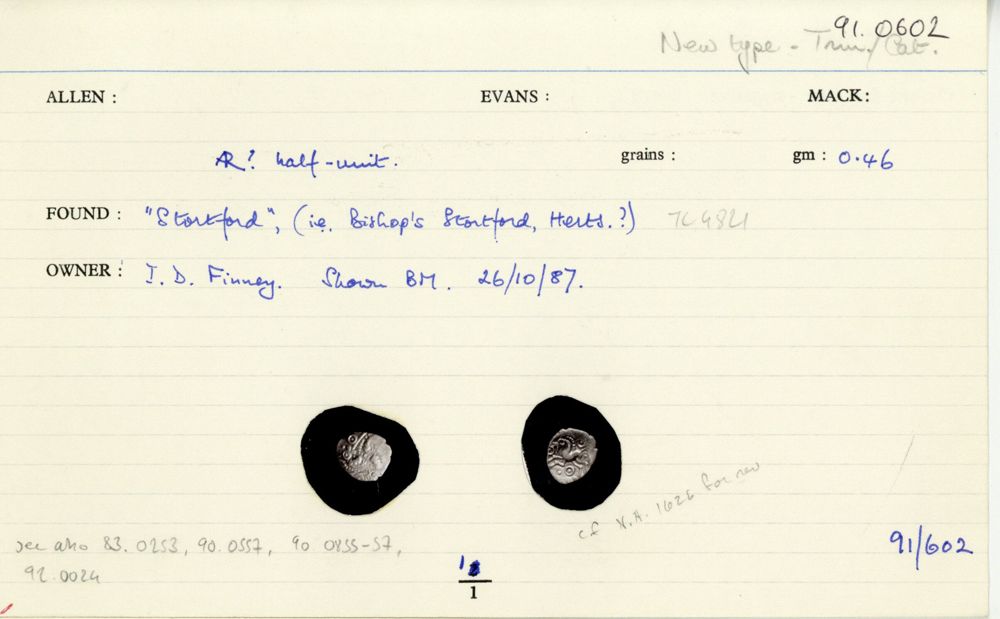 91.0602
New type - Trin./Cat.
ALLEN : EVANS : MACK:
AR? half-unit. grains : gm : 0.46
FOUND : "Stortford", (i.e. Bishop's Stortford, Herts.?) TL 4821
OWNER : I. D. Finney. Shown BM. 26/10/87.
cf V.A. 1626 for rev
91/602
see also 83.0253, 90.0557, 90 0855-57,
92.0024
1
1